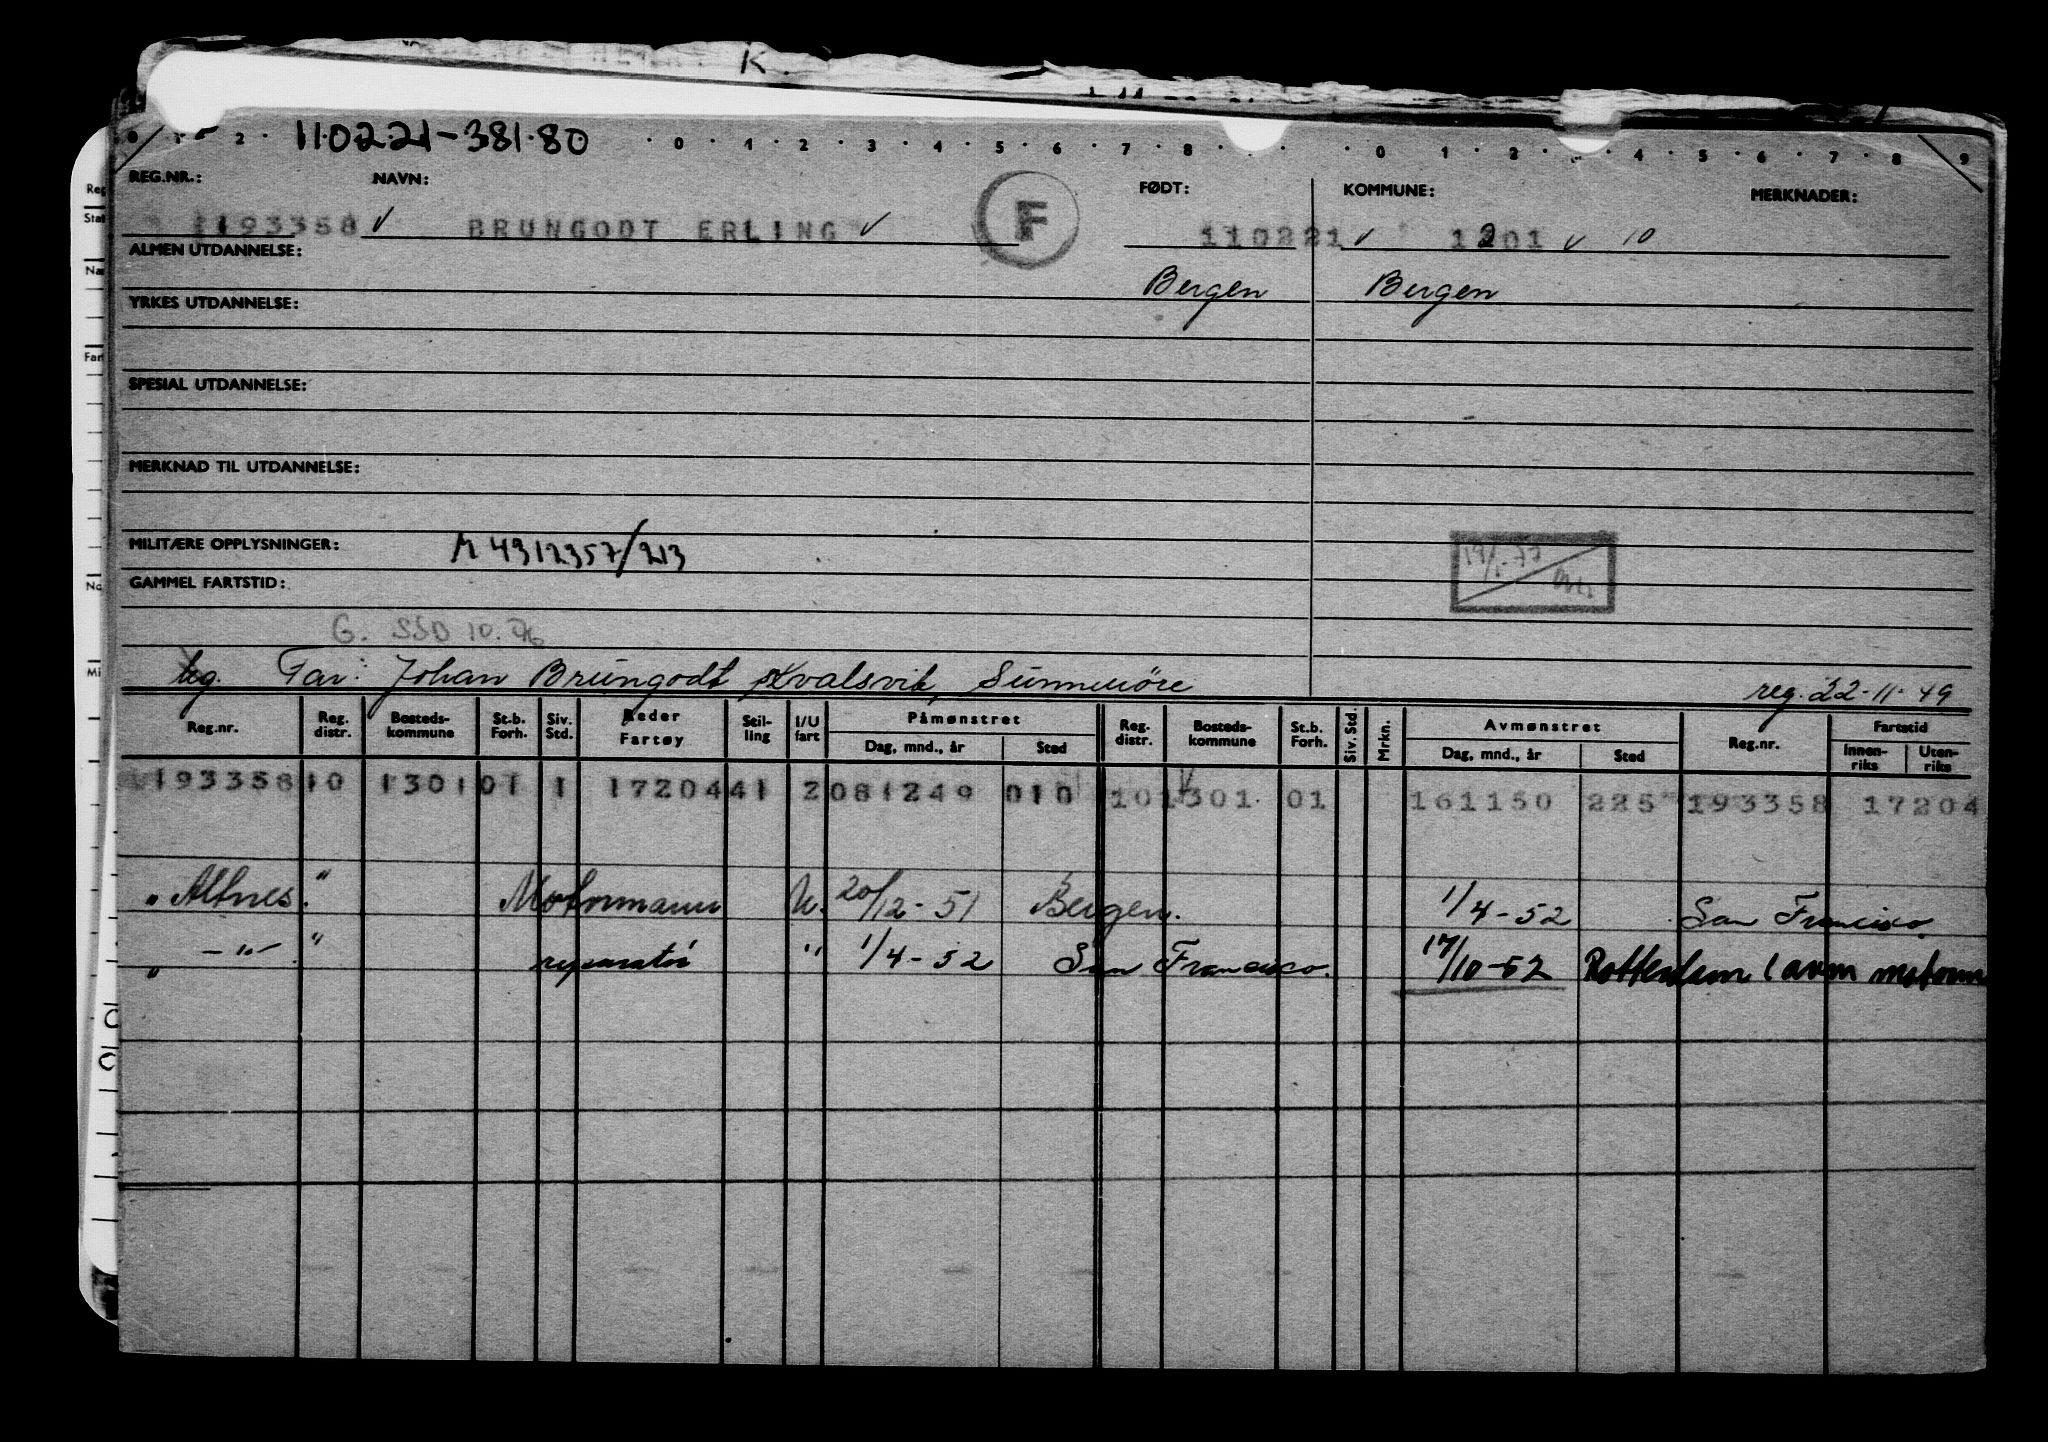 K.
0 1 2 11·02.21-381·80 0 1 2 3 4 5 6 7 8 0 1 2 4 5 6 7 8 9
REG.NR.: NAVN: FØDT: KOMMUNE: MERKNADER:
193358 BRUNGODT ERLING F 110221 1201 10
ALMEN UTDANNELSE:
Bergen Bergen
YRKES UTDANNELSE:
SPESIAL UTDANNELSE:
MERKNAD TIL UTDANNELSE:
MILITÆRE OPPLYSNINGER: M 4312357/213
GAMMEL FARTSTID:
G. SSD 10.76
ug. Far: Johan Brungodt Kvalsvik, Sunnmöre reg. 22-11-49
Reg.nr. Reg. distr. Bosteds-kommune St.b. Forh. Siv. Std. Reder Fartøy Stil-ling I/U fart Påmønstret Dag, mnd., år Sted Reg. distr. Bosteds-kommune St.b. Forh. Siv. Std. Mrkn. Avmønstret Dag, mnd., år Sted Reg.nr. Fartstid Innen-riks Uten-riks
193358 10 1301 01 1 17204 41 2 081249 010 10 1301 01 161150 225 193358 17204
" Altnes. " Motormann U. 20/12-51 Bergen. 1/4-52 San Francisco.
" -"- " reparatör " 1/4-52 San Francisco. 17/10-52 Rotterdam (avm motorm